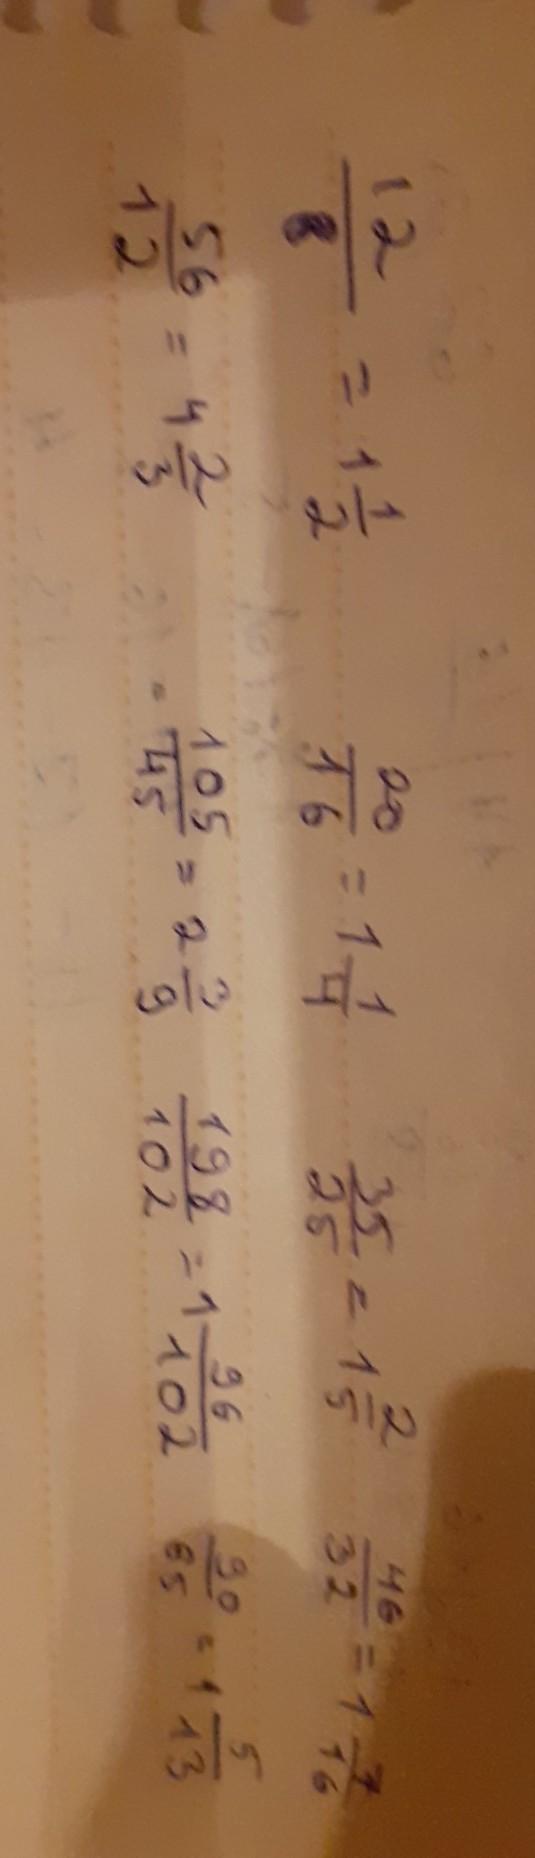 12/8 = 1 1/2   20/16 = 1 1/4   35/25 = 1 2/5   46/32 = 1 7/16
56/12 = 4 2/3   = 105/45 = 2 3/9   198/102 = 1 96/102   90/65 = 1 5/13